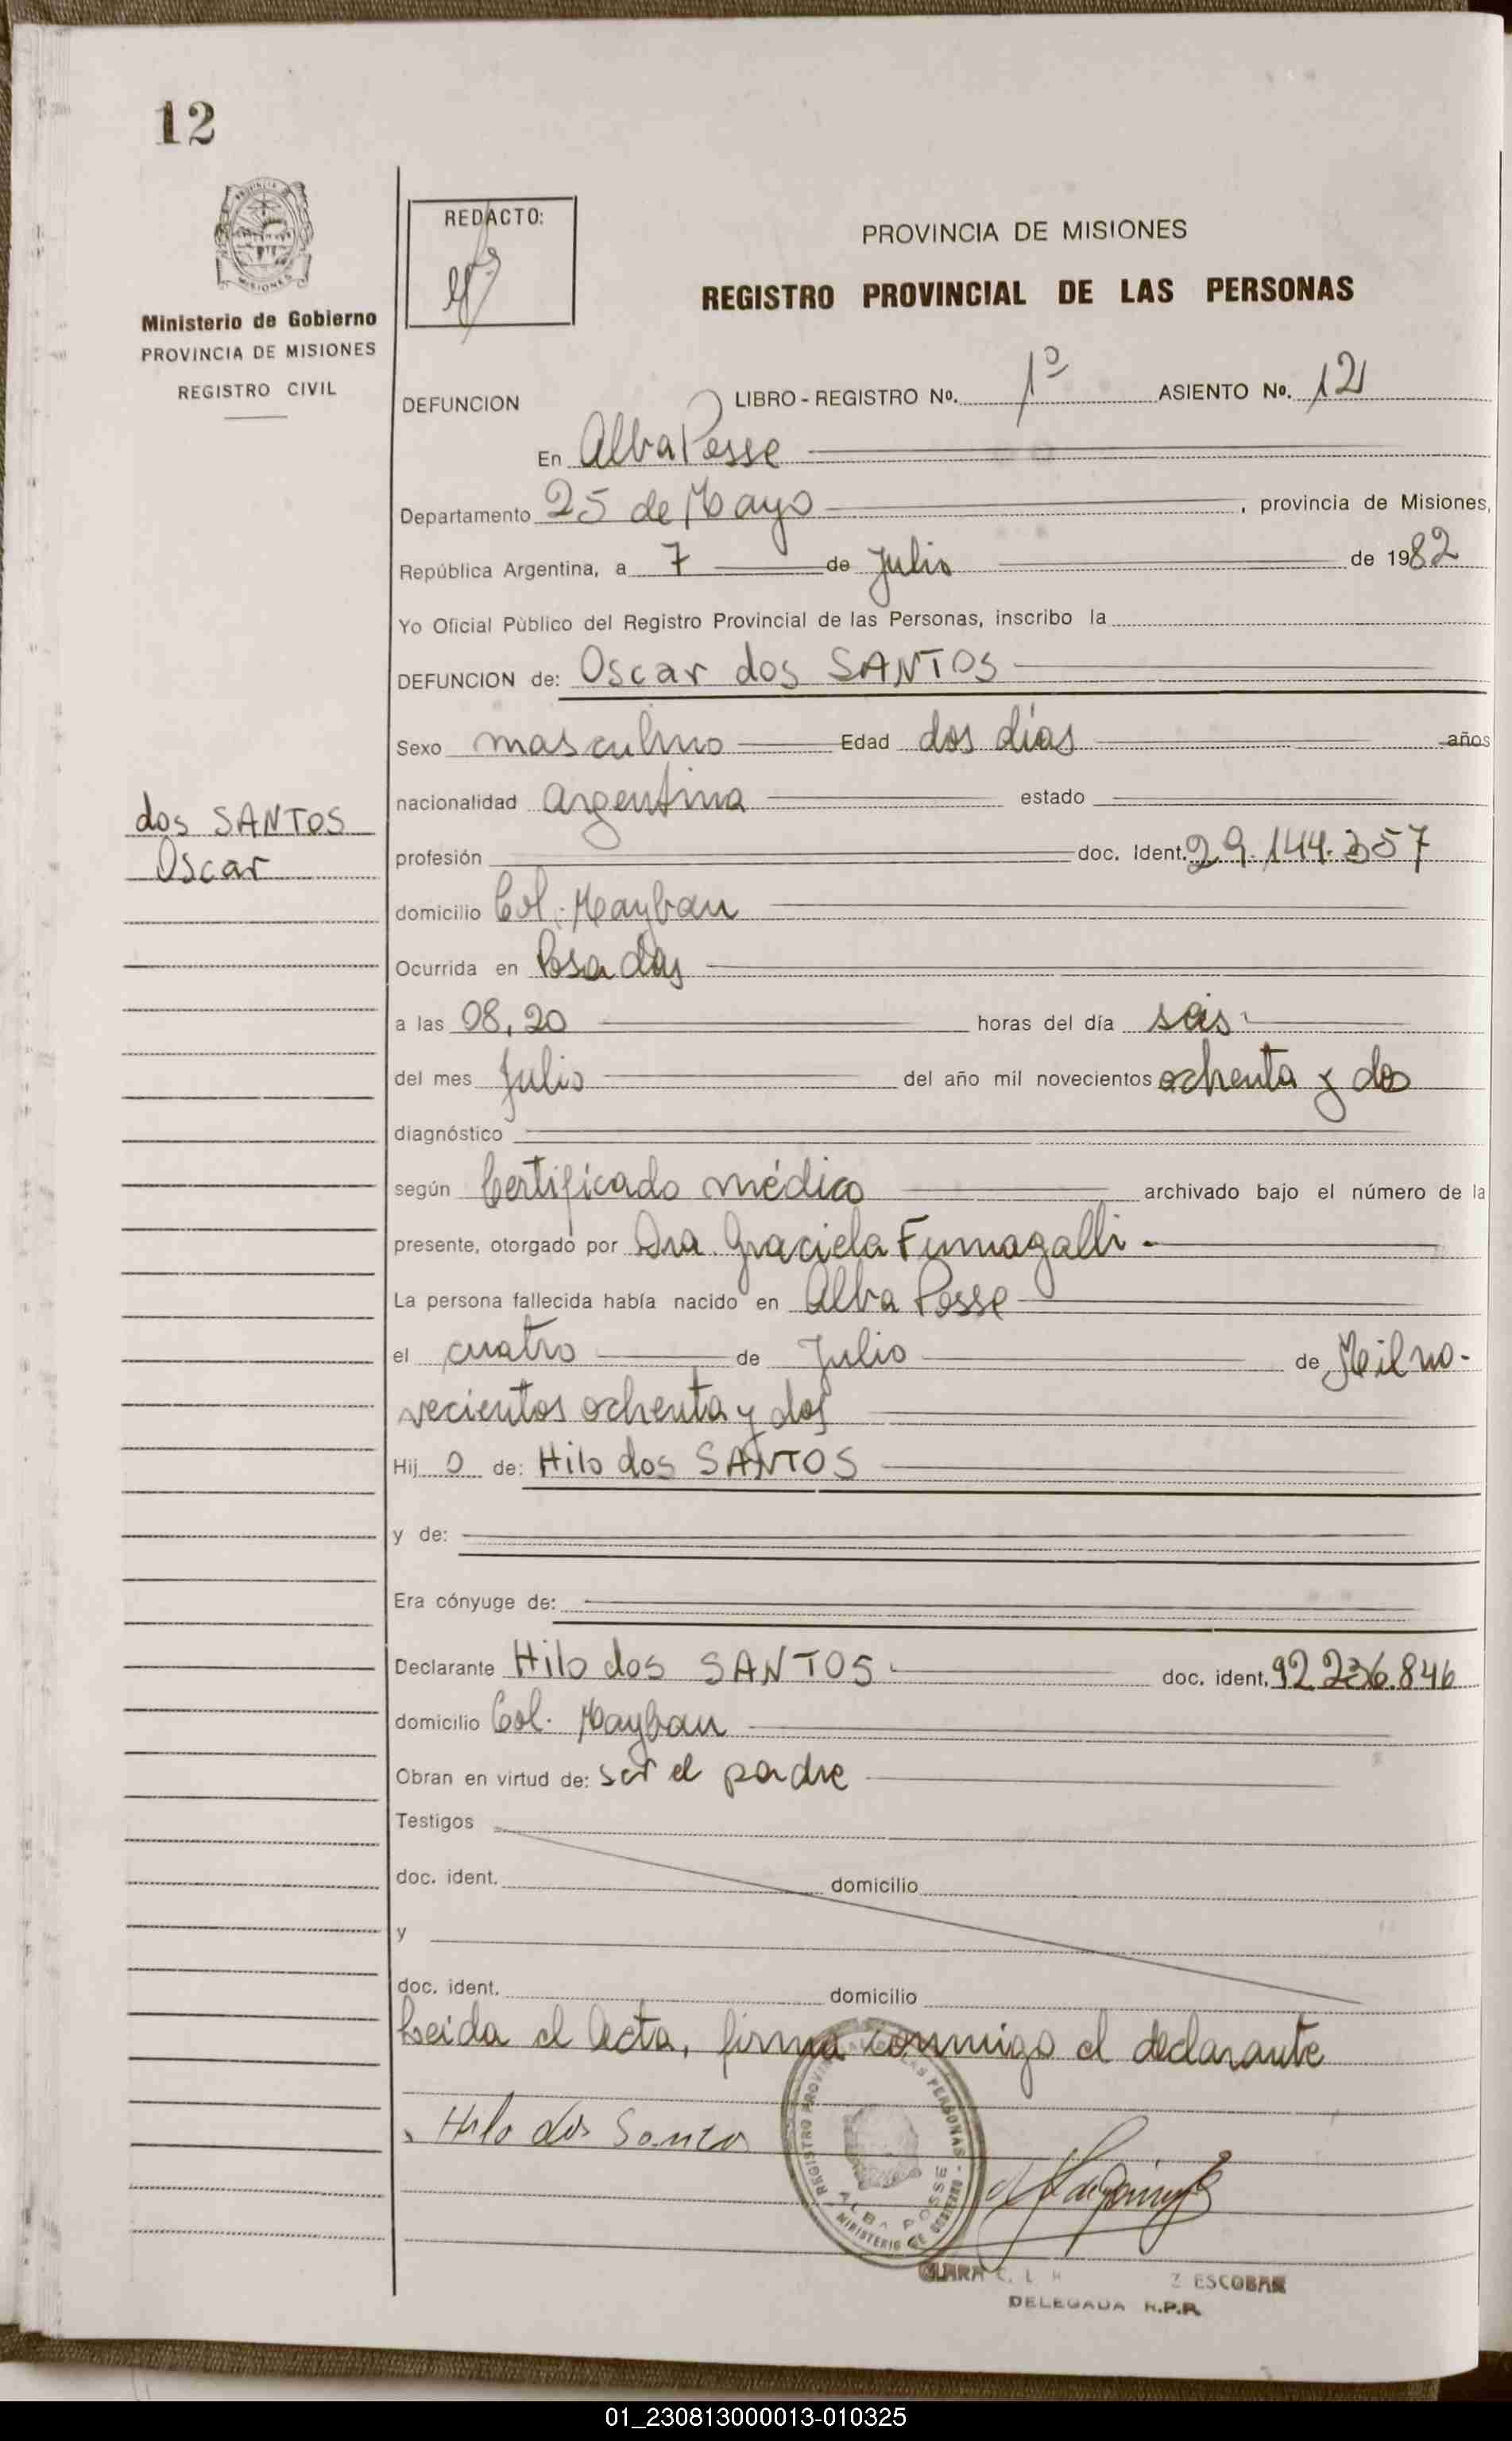 12
REDACTO:
PROVINCIA DE MISIONES
REGISTRO PROVINCIAL DE LAS PERSONAS
Ministerio de Gobierno
PROVINCIA DE MISIONES
REGISTRO CIVIL
DEFUNCION LIBRO - REGISTRO No. 1º ASIENTO No. 12
En Alba Posse
Departamento 25 de Mayo, provincia de Misiones,
República Argentina, a 7 de Julio de 1982
Yo Oficial Público del Registro Provincial de las Personas, inscribo la
DEFUNCION de: Oscar dos SANTOS
Sexo masculino Edad dos días años
nacionalidad argentina estado
dos SANTOS
Oscar
profesión doc. Ident. 29.144.357
domicilio Col. Mayban
Ocurrida en Posadas
a las 08,20 horas del día seis
del mes Julio del año mil novecientos ochenta y dos
diagnóstico
según Certificado médico archivado bajo el número de la
presente, otorgado por Dra. Graciela Fumagalli -
La persona fallecida había nacido en Alba Posse
el cuatro de Julio de Mil no-
vecientos ochenta y dos
Hij o de: Hilo dos SANTOS
y de:
Era cónyuge de:
Declarante Hilo dos SANTOS doc. ident. 92236.846
domicilio Col. Mayban
Obran en virtud de: ser el padre
Testigos
doc. ident. domicilio
y
doc. ident. domicilio
Leida el Acta, firma conmigo el declarante
Hilo dos Santos
REGISTRO PROVINCIAL DE LAS PERSONAS -
ALBA POSSE
MINISTERIO DE GOBIERNO
CLARA ESCOBAR
DELEGADA R.P.P.
01_230813000013-010325